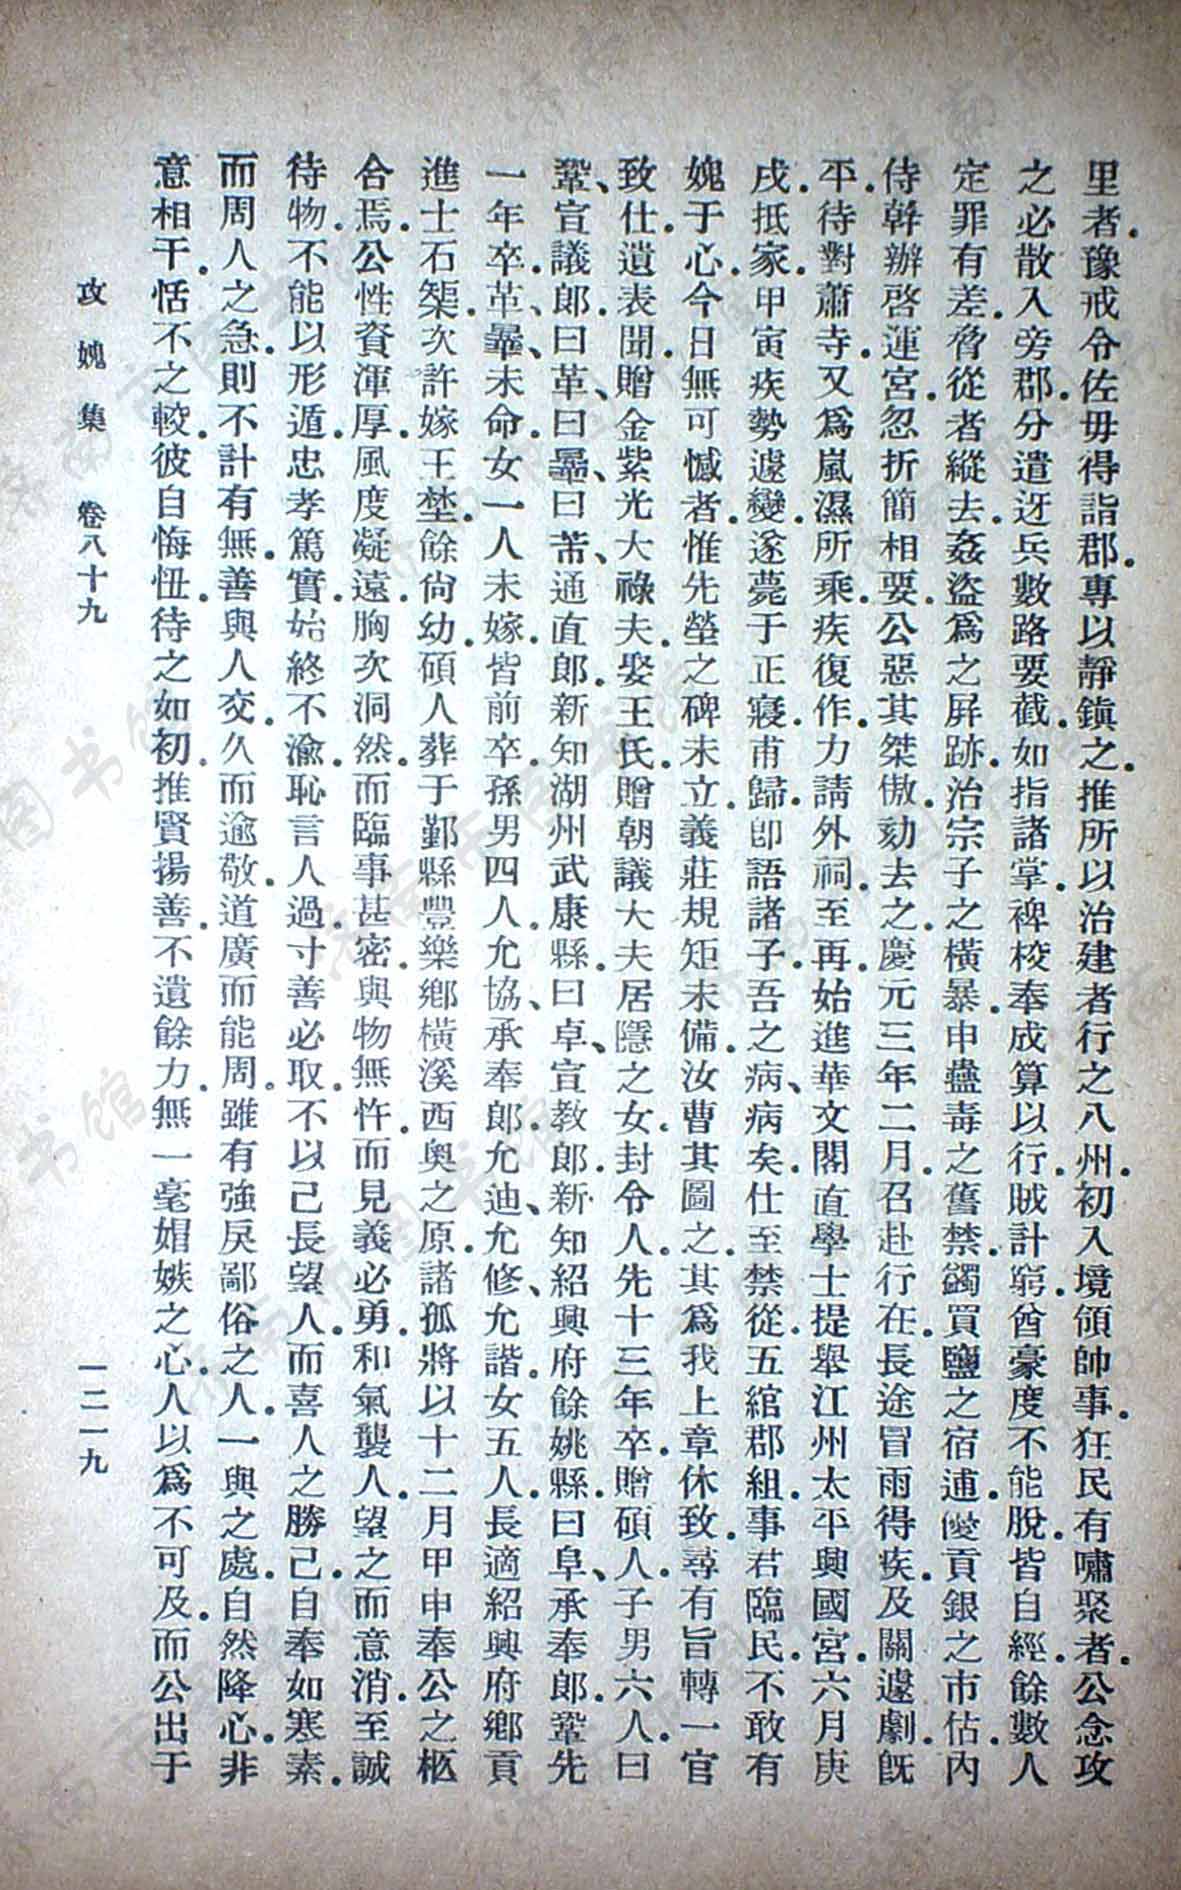 里者。豫戒令佐毋得詣郡。專以靜鎭之。推所以治建者行之八州。初入境領帥事。狂民有嘯聚者。公念攻
之必散入旁郡。分遣迓兵數路要截。如指諸掌。裨校奉成算以行。賊計窮。酋豪度不能脫。皆自經。餘數人
定罪有差。脅從者縱去。姦盜爲之屛跡。治宗子之橫暴。申蠱毒之舊禁。蠲買鹽之宿逋。優貢銀之市估。內
侍幹辦啓運宮。忽折簡相要。公惡其桀傲。劾去之。慶元三年二月。召赴行在。長途冒雨得疾。及關遽劇。旣
平。待對蕭寺。又爲嵐濕所乘。疾復作。力請外祠。至再。始進華文閣直學士提舉江州太平興國宮。六月庚
戌。抵家。甲寅疾勢遽變。遂薨于正寢。甫歸。卽語諸子。吾之病、病矣。仕至禁從。五綰郡組。事君臨民。不敢有
媿于心。今日無可憾者。惟先塋之碑未立。義莊規矩未備。汝曹其圖之。其爲我上章休致。尋有旨轉一官
致仕。遺表聞。贈金紫光大祿夫。娶王氏。贈朝議大夫居隱之女。封令人。先十三年卒。贈碩人。子男六人。曰
鞏、宣議郎。曰革、曰羃、曰芾、通直郎。新知湖州武康縣。曰卓、宣教郎。新知紹興府餘姚縣。曰阜、承奉郎。鞏先
一年卒。革、羃未命。女一人未嫁。皆前卒。孫男四人。允協、承奉郎。允迪、允修、允諧。女五人。長適紹興府鄕貢
進士石榘。次許嫁王埜。餘尙幼。碩人葬于鄞縣豐樂鄕橫溪西奧之原。諸孤將以十二月甲申奉公之柩
合焉。公性資渾厚。風度凝遠。胸次洞然。而臨事甚密。與物無忤。而見義必勇。和氣襲人。望之而意消。至誠
待物。不能以形遁。忠孝篤實。始終不渝。恥言人過。寸善必取。不以己長望人。而喜人之勝己。自奉如寒素。
而周人之急。則不計有無。善與人交。久而逾敬。道廣而能周。雖有強戾鄙俗之人。一與之處。自然降心。非
意相干。恬不之較。彼自悔忸。待之如初。推賢揚善。不遺餘力。無一毫媢嫉之心。人以爲不可及。而公出于
攻媿集 卷八十九 一二一九